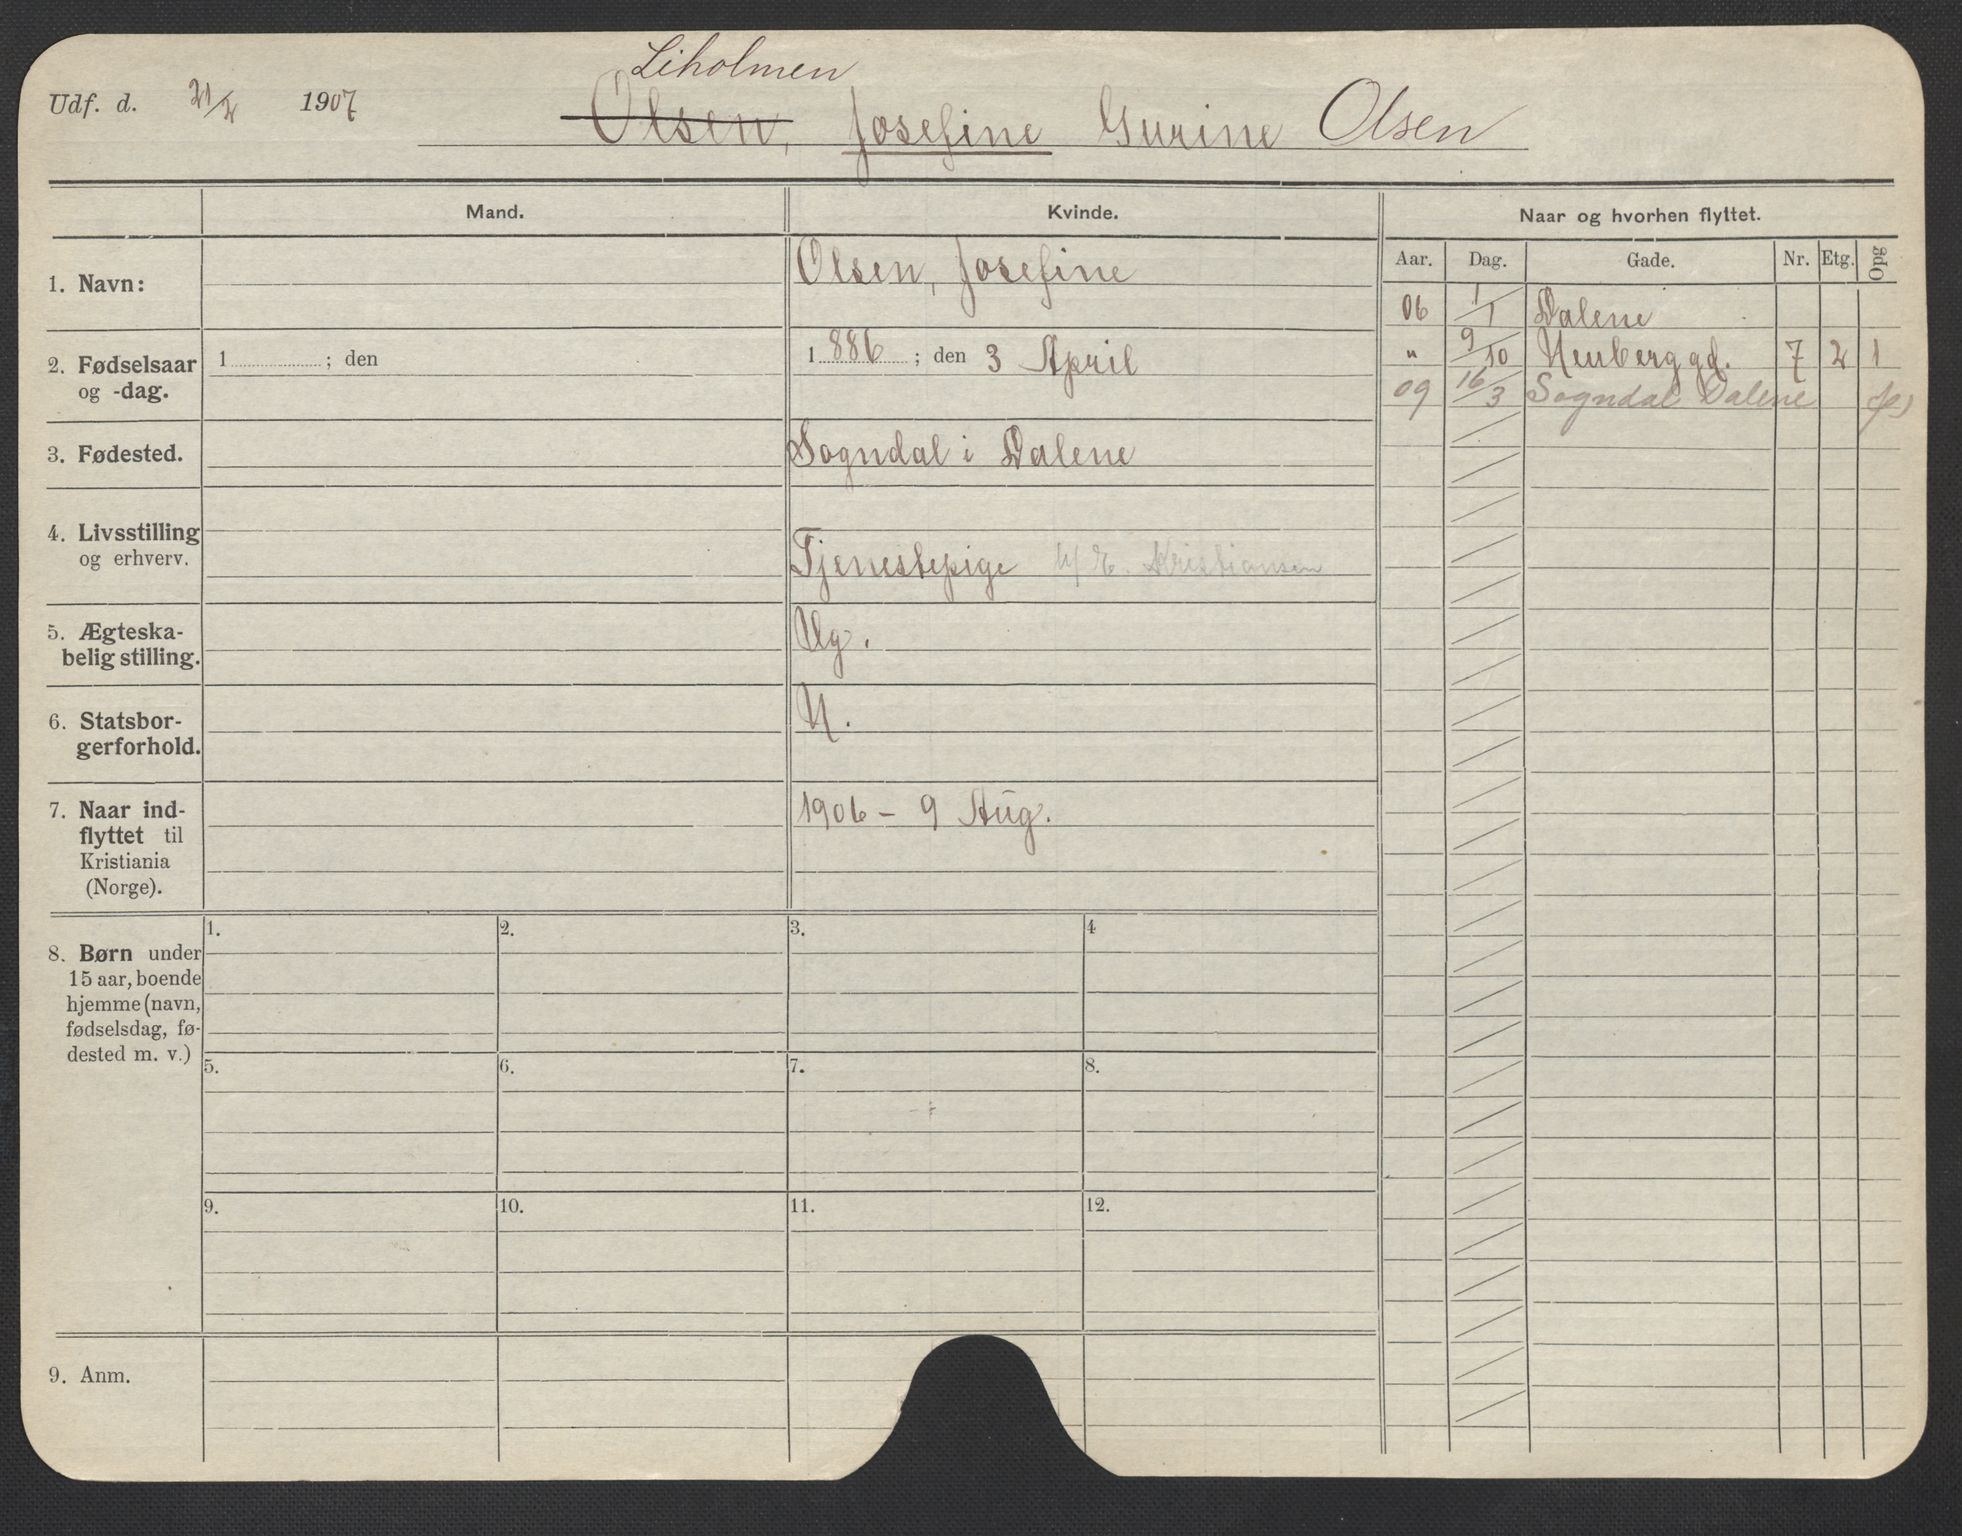 Liholmen
Udf. d. 21/2 1907 Olsen, Josefine Gurine Olsen
Mand. Kvinde. Naar og hvorhen flyttet.
Aar. Dag. Gade. Nr. Etg. Opg
1. Navn: Olsen, Josefine
06 1/1 Dalene
2. Fødselsaar og -dag. 1 ; den 1886 ; den 3 April
" 9/10 Neuberg gd. 7 2 1
09 16/3 Sogndal Dalene
3. Fødested. Sogndal i Dalene
4. Livsstilling
og erhverv. Tjenestepige h/ E. Kristiansen
5. Ægteska-
belig stilling. Ug.
6. Statsbor-
gerforhold. N.
7. Naar ind-
flyttet til
Kristiania
(Norge). 1906 – 9 Aug.
8. Børn under
15 aar, boende
hjemme (navn,
fødselsdag, fø-
dested m. v.)
1. 2. 3. 4
5. 6. 7. 8.
9. 10. 11. 12.
9. Anm.